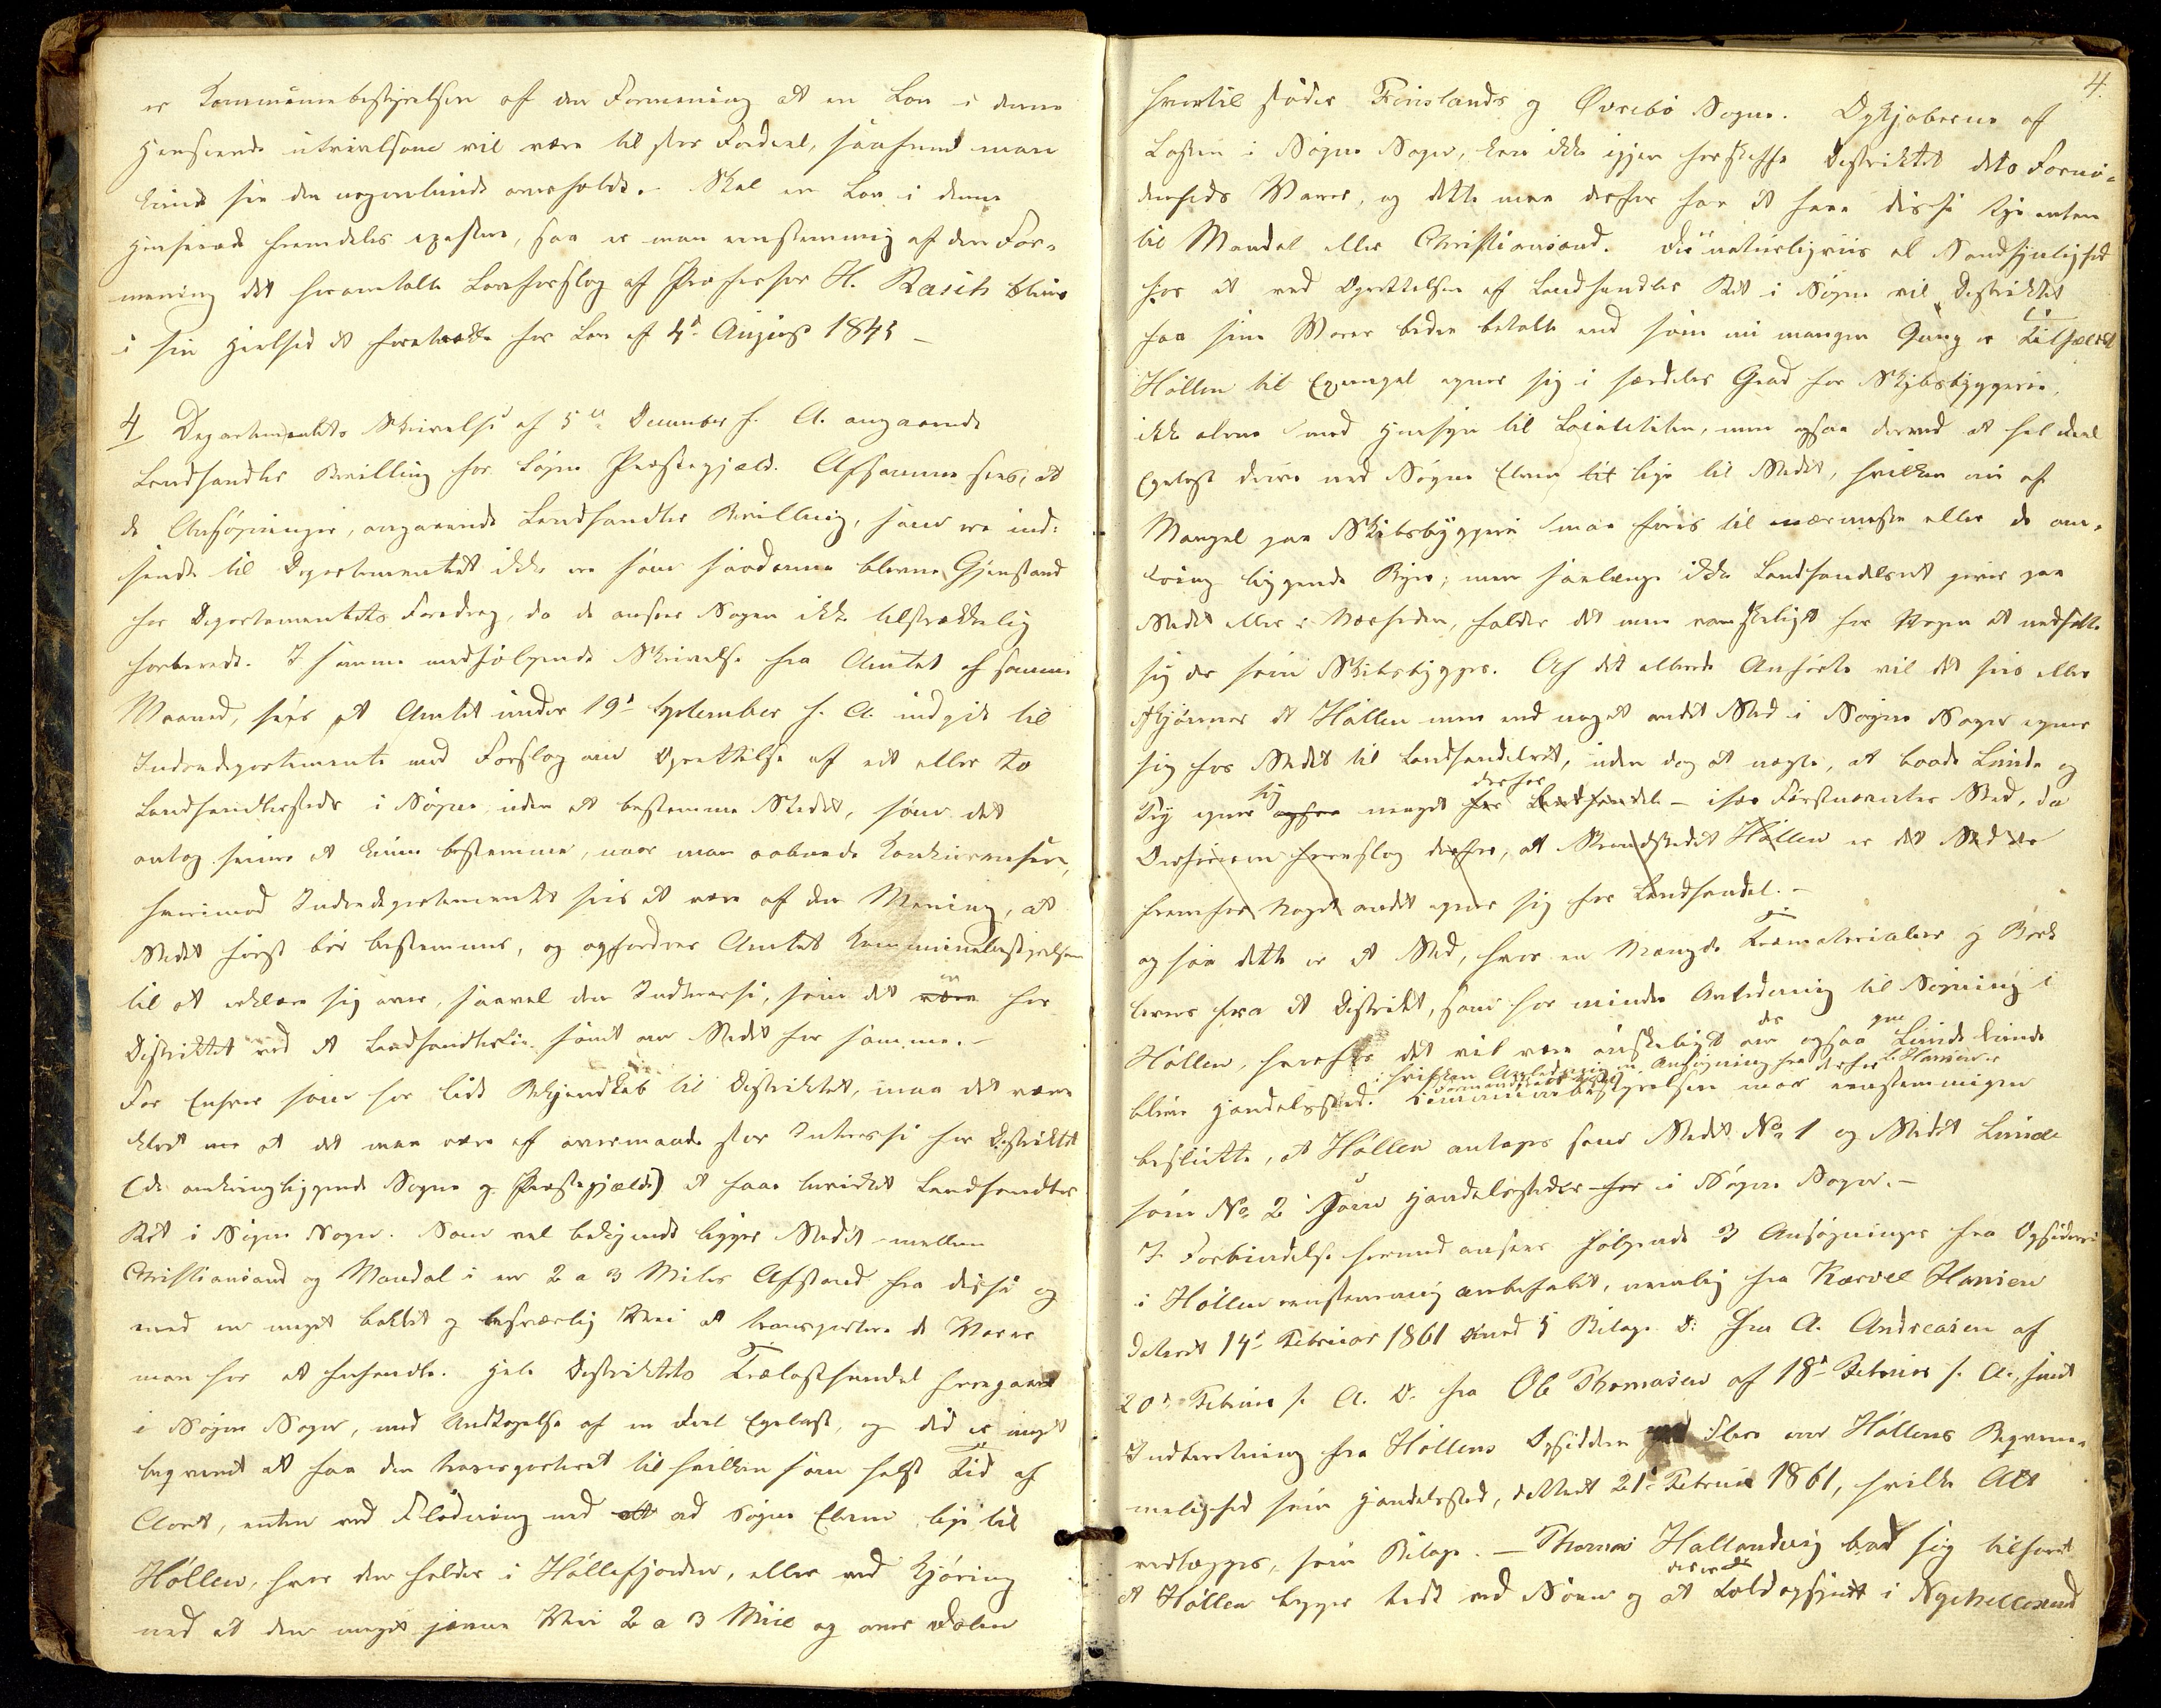 er Kommunebestyrelsen af den Formening at en Lov i denne
Henseende utvivlsomt vil være til stor Fordeel, saafremt man
kunde see den nogenlunde overholdt. Skal en Lov i denne
Henseende fremdeles existere, saa er man eenstemmig af den For-
mening det foromtalte Lovforslag af Professor H. Rasch bliver
i sin Heelhed at foretrække for Lov af 4de August 1845 –
4 Departementets Skrivelse af 5te December f. A. angaaende
Landhandler Bevilling for Søgne Præstegjæld. Af samme sees, at
de Ansøgninger, angaaende Landhandler Bevilling, som ere ind-
sendte til Departementet ikke ere som saadanne blevne Gjenstand
for Departementets Foredrag, da de ansees Sagen ikke tilstrækkelig
forberedt. I samme medfølgende Skrivelse fra Amtet af samme
Maaned, sees at Amtet under 19de September f. A. indgik til
Indredepartementet med Forslag om Oprettelse af eet eller to
Landhandlersteder i Søgne uden at bestemme Stedet, som det
antog senere at kunne bestemme, naar man aabnede Konkurrencen,
hvorimod Indredepartementet sees at være af den Mening, at
Stedet først bør bestemmes, og opfordrer Amtet Kommunebestyrelsen
til at erklære sig over, saavel den Interesse, som det er for
Distriktet ved et Landhandleri samt om Stedet for samme. –
For Enhver som har lidt Bekjendskab til Distriktet, maa det være
klart at det maa være af overmaade stor Interesse for Distriktet
(de omkringliggende Sogne og Præstegjælde) at faae Landhandler
Ret i Søgne Sogn. Som vel bekjendt ligger Stedet mellem
Christiansand og Mandal i en 2 a 3 Miles Afstand fra disse og
med en meget bakket og besværlig Vei at transportere de Varer
man har at forhandle. Hele Distriktets Trælasthandel foregaaer
i Søgne Sogn, med Undtagelse af en Deel Egelast, og det er meget
beqvemt at faae den transporteret til hvilkensomhelst Tid af
Aaret, enten ved Flødning ned ad Søgne Elven lige til
Høllen, hvor den falder i Høllefjorden, eller ved Kjøring
ned at den meget jævne Vei 2 a 3 Miil og over Dalen
4.
hvortil støder Finslands og Øvrebø Sogne. Opkjøberne af
Lasten i Søgne Sogn, kan ikke igjen forskaffe Distriktet dets Fornø-
denheds Varer, og dette maa derfor for at faae disse tye enten
til Mandal eller Christiansand. Det er naturligviis al Sandsynlighed
for at ved Oprettelsen af Landhandler Ret i Søgne vil Distriktet
faa sine Varer bedre betalt end som nu mangen Gang er Tilfældet
Høllen til Exempel egner sig i særdeles Grad for Skibsbyggerie,
ikke alene med Hensyn til Localiteten, men ogsaa derved at hel Deel
Egelast drives ned Søgne Elven lige til Stedet, hvilken nu af
Mangel paa Skibsbyggerie maa føres til nærmeste eller de om-
kring liggende Byer; men saalænge ikke Landhandelsret gives paa
Stedet eller i Nærheden, falder det mere vanskeligt for Nogen at nedsætte
sig der som Skibsbygger. Af det allerede Anførte vil det sees eller
skjønnes at Høllen mere end noget andet Sted i Søgne Sogn egner
sig som Stedet til Landhandelret, uden dog at negte, at baade Lunde og
Tey egner sig meget derfor – især Førstnævnte Sted, da
Ordføreren foreslog derfor, at Strandstedet Høllen er det Sted der
fremfor Noget andet egner sig for Landhandel. –
ogsaa dette er et Sted, hvor en Mængde Træmaterialier og Bark
leveres fra et Distrikt, som har mindre Anledning til Søgning i
Høllen, hvorfor det vil være ønskeligt om der ogsaa paa Lunde kunde
blive Handelssted. i hvilken Anledning en Ansøgning fra derfor
Kommunebestyrelsen maa eenstemmigen
beslutte, at Høllen antages som Stedet No 1 og Stedet Lunde
som No 2 som Handelssteder i Søgne Sogn. –
I Forbindelse hermed ansees følgende 3 Ansøgninger fra Opsiddere
i Høllen eenstemmig anbefalet, nemlig fra Karvel Hansen
dateret 14de Februar 1861 med 5 Bilage D: fra A. Andreasen af
20de Februar s. A. D. fra Ole Thomasen af 18de Februar s. A., samt
Indberetning fra Høllens Opsiddere med Flere om Høllens Beqvem-
melighed som Handelssted, dateret 21de Februar 1861, hvilke Alt
vedlægges, som Bilage. – Thomas Hallandvig bad sig tilført
at Høllen ligger tæt ved Søen og at der er Toldopsyn i Nyehellesund